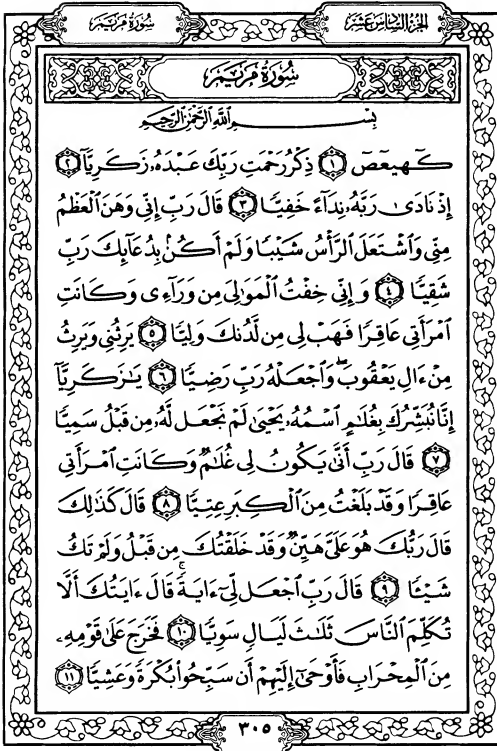 الجزء السادس عشر
سورة مريم
سُورَةُ مَرْيَمَ
بِسْمِ ٱللَّهِ ٱلرَّحْمَٰنِ ٱلرَّحِيمِ
كٓهيعٓصٓ ١ ذِكْرُ رَحْمَتِ رَبِّكَ عَبْدَهُۥ زَكَرِيَّآ ٢
إِذْ نَادَىٰ رَبَّهُۥ نِدَآءً خَفِيًّا ٣ قَالَ رَبِّ إِنِّي وَهَنَ ٱلْعَظْمُ
مِنِّي وَٱشْتَعَلَ ٱلرَّأْسُ شَيْبًا وَلَمْ أَكُنۢ بِدُعَآئِكَ رَبِّ
شَقِيًّا ٤ وَإِنِّي خِفْتُ ٱلْمَوَٰلِيَ مِن وَرَآءِي وَكَانَتِ
ٱمْرَأَتِي عَاقِرًا فَهَبْ لِي مِن لَّدُنكَ وَلِيًّا ٥ يَرِثُنِي وَيَرِثُ
مِنْ ءَالِ يَعْقُوبَ ۖ وَٱجْعَلْهُ رَبِّ رَضِيًّا ٦ يَٰزَكَرِيَّآ
إِنَّا نُبَشِّرُكَ بِغُلَٰمٍ ٱسْمُهُۥ يَحْيَىٰ لَمْ نَجْعَل لَّهُۥ مِن قَبْلُ سَمِيًّا
٧ قَالَ رَبِّ أَنَّىٰ يَكُونُ لِي غُلَٰمٌ وَكَانَتِ ٱمْرَأَتِي
عَاقِرًا وَقَدْ بَلَغْتُ مِنَ ٱلْكِبَرِ عِتِيًّا ٨ قَالَ كَذَٰلِكَ
قَالَ رَبُّكَ هُوَ عَلَيَّ هَيِّنٌ وَقَدْ خَلَقْتُكَ مِن قَبْلُ وَلَمْ تَكُ
شَيْـًٔا ٩ قَالَ رَبِّ ٱجْعَل لِّيٓ ءَايَةً ۚ قَالَ ءَايَتُكَ أَلَّا
تُكَلِّمَ ٱلنَّاسَ ثَلَٰثَ لَيَالٍ سَوِيًّا ١٠ فَخَرَجَ عَلَىٰ قَوْمِهِۦ
مِنَ ٱلْمِحْرَابِ فَأَوْحَىٰٓ إِلَيْهِمْ أَن سَبِّحُوا۟ بُكْرَةً وَعَشِيًّا ١١
٣٠٥